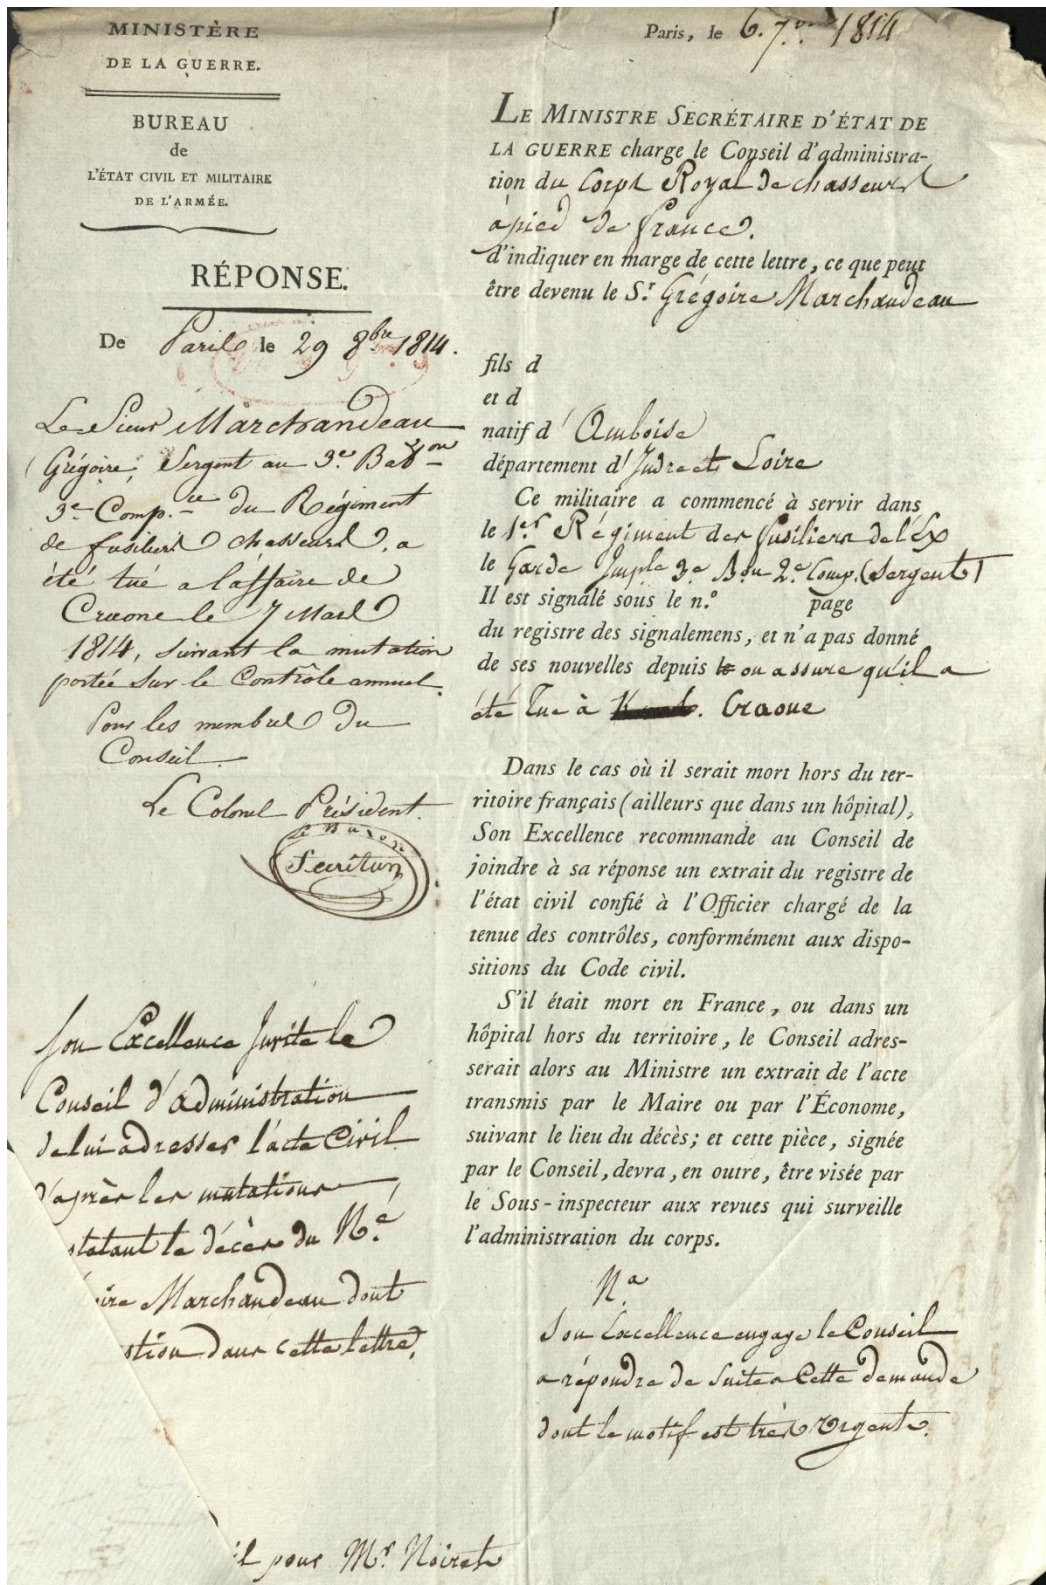 MINISTÈRE
DE LA GUERRE.
BUREAU
de
L'ÉTAT CIVIL ET MILITAIRE
DE L'ARMÉE.
RÉPONSE.
De Paris le 29 8bre 1814.
Le Sieur Marchandeau
(Grégoire, Sergent au 3e. Baton
3e Comp.ie du Régiment
de fusiliers chasseurs, a
été tué a l'affaire de
Craone le 7 Mars
1814, suivant la mutation
portée sur le Contrôle annuel.
Pour les membres du
Conseil.
Le Colonel Président.
Le Baron
Secrétan
Son Excellence Invite le
Conseil d'administration
de lui adresser l'acte Civil
d'après les mutations,
statant le décès du N.é
oire Marchandeau dont
stion dans cette lettre.
il pour Mr. Noiret
Paris, le 6. 7.bre 1814
LE MINISTRE SECRÉTAIRE D'ÉTAT DE
LA GUERRE charge le Conseil d'administra-
tion du Corps Royal de chasseurs
à pied de france.
d'indiquer en marge de cette lettre, ce que peut
être devenu le S.r Grégoire Marchandeau
fils d
et d
natif d' Amboise
département d' Indre et Loire
Ce militaire a commencé à servir dans
le 1er. Régiment des fusiliers de l'Ex
le Garde Imple 3e Bon 2e Comp. (Sergent)
Il est signalé sous le n.o page
du registre des signalemens, et n'a pas donné
de ses nouvelles depuis le on assure qu'il a
été Tué à Craone
Dans le cas où il serait mort hors du ter-
ritoire français (ailleurs que dans un hôpital),
Son Excellence recommande au Conseil de
joindre à sa réponse un extrait du registre de
l'état civil confié à l'Officier chargé de la
tenue des contrôles, conformément aux dispo-
sitions du Code civil.
S'il était mort en France, ou dans un
hôpital hors du territoire, le Conseil adres-
serait alors au Ministre un extrait de l'acte
transmis par le Maire ou par l'Économe,
suivant le lieu du décès; et cette pièce, signée
par le Conseil, devra, en outre, être visée par
le Sous-inspecteur aux revues qui surveille
l'administration du corps.
N.a
Son Excellence engage le Conseil
a répondre de suite a Cette demande
dont le motif est très Urgente.